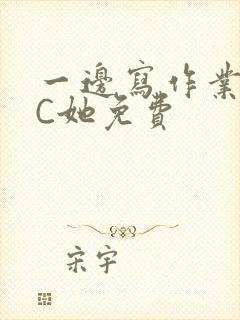 一邊寫作業
C她免費
宋宇